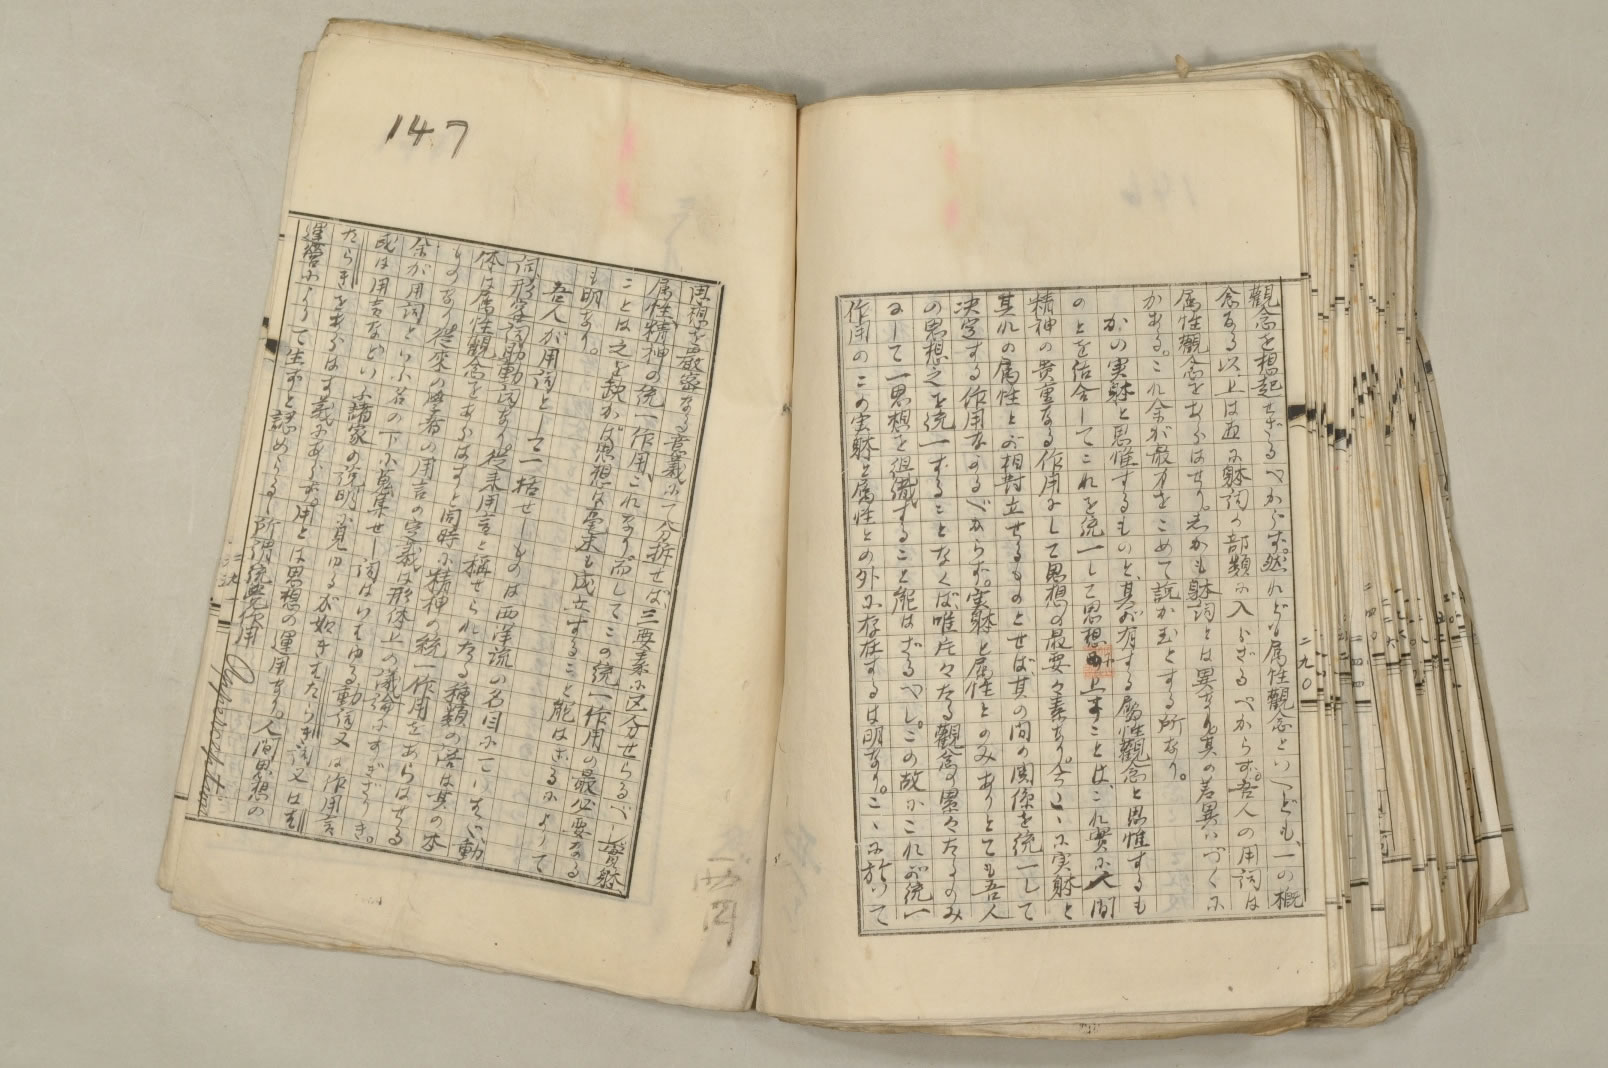 觀念を想起せざるべからず。然れども属性觀念といへども、一の概
念なる以上は直に躰詞の部類に入らざるべからず。吾人の用詞は
属性觀念をあらはせり。しかも躰詞とは異なり、其の差異いづくに
かある。これ余が最力をこめて説かむとする所なり。
かの実躰と思惟するものと、其が有する属性觀念と思惟するも
のとを結合してこれを統一して思想上すことは、これ実に人間
精神の貴重なる作用にして思想の最要々素なり。今ここに実躰と
其れの属性とが相對立せるものとせば其の間の関係を統一して
決定する作用なかるべからず。実躰と属性とのみありとても吾人
の思想之を統一することなくば唯片々たる觀念の累々たるのみ
にして一思想を組織すること能はざるべし。この故にこれが統一
作用のこの実躰と属性との外に存在するは明なり。ここに於いて
二九〇
147
思想を嚴密なる意義にて分拆せば三要素に区分せらるべし實躰、
属性、精神の統一作用、これなり。而してこの統一作用の最必要なる
ことは之を缺かば思想は毫末も成立すること能はざるによりて
も明なり。
吾人が用詞として一括せしものは西洋流の名目にていはば動
詞形容詞助動詞なり。從来用言と稱せられたる種類の語は其の本
体は属性觀念をあらはすと同時に精神の統一作用をあらはせる
ものなり。從來の學者の用言の定義は形体上の議論にすぎざりき。
余が用詞といふ名の下に蒐集せし詞はいはゆる動詞又は作用言
或は用言などいふ諸家の説明に見ゆるが如きはたらき詞又はは
たらきをあらはす義にあらず、用とは思想の運用なり。人間思想の
運営によりて生ずと認めらるる所謂統覺作用
二九一